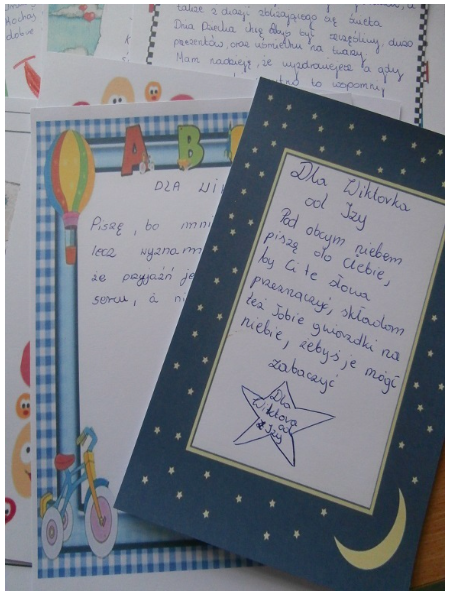 także z okazji zbliżającego się święta
Dnia Dziecka chcę abyś był szczęśliwy, dużo
prezentów, oraz uśmiechu na twarzy
Mam nadzieję, że wyzdrowiejesz a gdy
to wspomny
Kochas
dobre
A B
DLA Wi
Piszę, bo
lecz wyznam
że przyjaźń je
sercu, a ni
Dla Wiktorka
od Izy
Pod obcym niebem
piszę do Ciebie,
by Ci te słowa
przeznaczyć, składam
też Tobie gwiozdki na
niebie, żebyś je mógł
zobaczyć
Dla
Wiktora
od
Izy